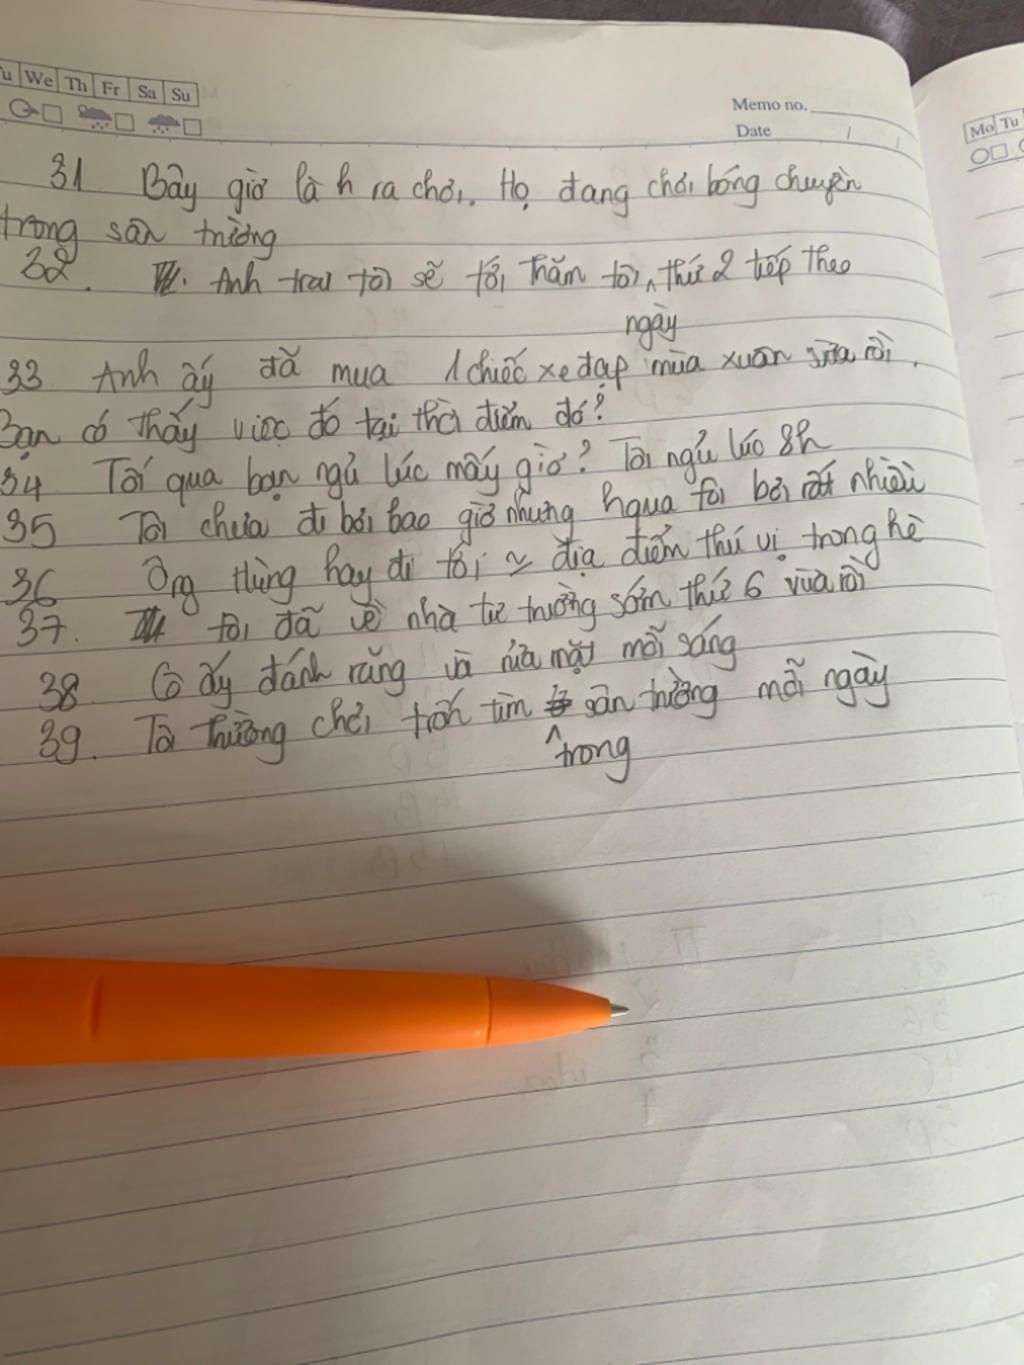 u We Th Fr Sa Su
Memo no.
Date / /
Mo Tu
31 Bây giờ là h ra chơi. Họ đang chơi bóng chuyền
trong sân trường
32. Anh trai tôi sẽ tới thăm tôi ^ thứ 2 tiếp theo
ngày
33 Anh ấy đã mua 1 chiếc xe đạp mùa xuân vừa rồi.
Bạn có thấy việc đó tại thời điểm đó?
34 Tối qua bạn ngủ lúc mấy giờ? Tôi ngủ lúc 8h
35 Tôi chưa đi bơi bao giờ nhưng hqua tôi bơi rất nhiều
36 Ông Hùng hay đi tới ~ địa điểm thú vị trong hè
37. tôi đã về nhà từ trường sớm thứ 6 vừa rồi
38 Cô ấy đánh răng và rửa mặt mỗi sáng
39. Tôi thường chơi trốn tìm ^ sân trường mỗi ngày
trong